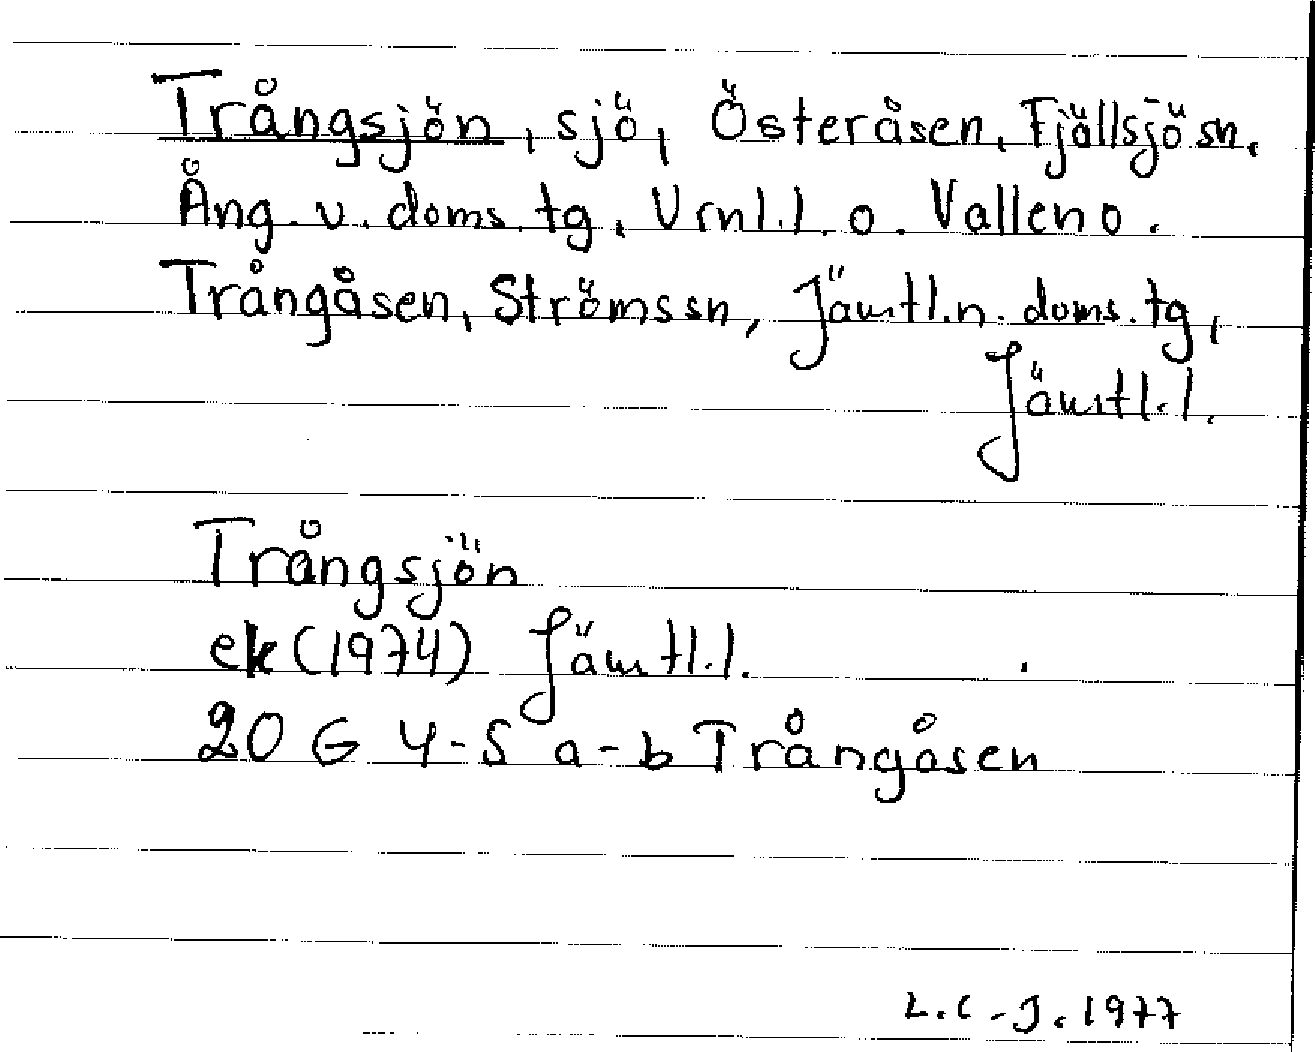 Trångsjön, sjö, Österåsen, Fjällsjö sn.
Ång. v. doms. tg, Vrnl.l. o. Vallen o.
Trångåsen, Ströms sn, Jämtl. n. doms. tg,
Jämtl. l.
Trångsjön
ek (1974) Jämtl. l.
20 G 4-5 a-b Trångåsen
L.C-J. 1977